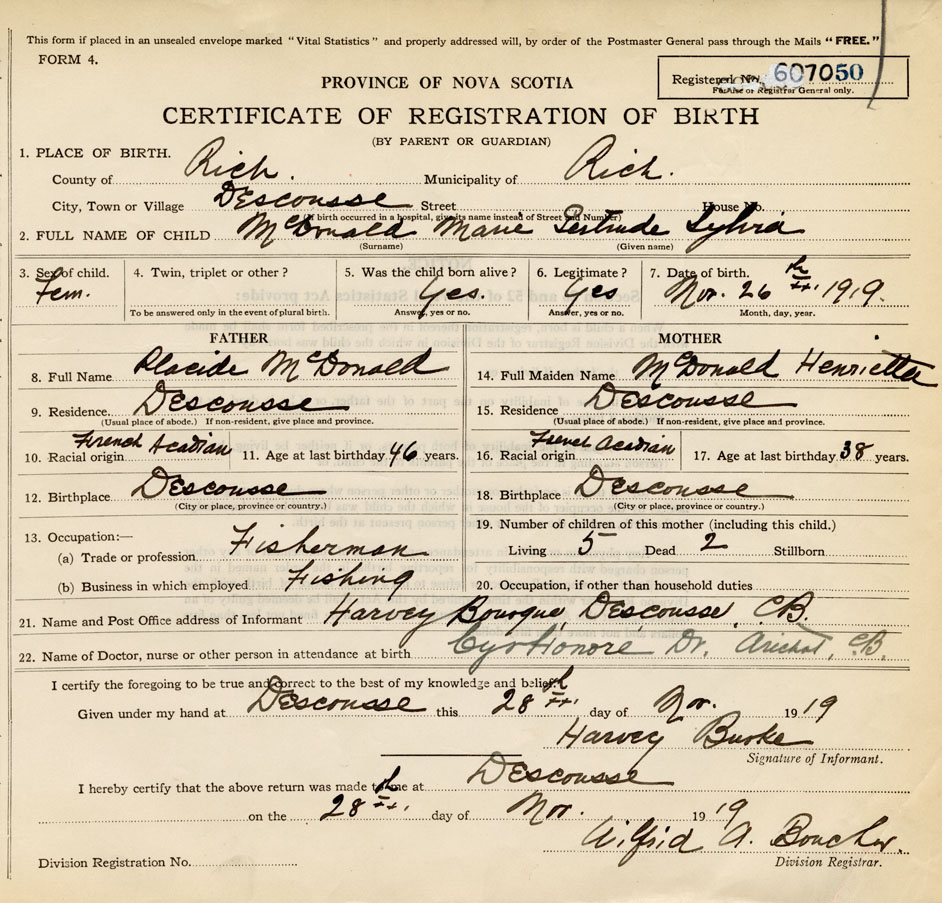 This form if placed in an unsealed envelope marked "Vital Statistics" and properly addressed will, by order of the Postmaster General pass through the Mails "FREE."
FORM 4.
Registered No. 607050
For use or Registrar General only.
PROVINCE OF NOVA SCOTIA
CERTIFICATE OF REGISTRATION OF BIRTH
(BY PARENT OR GUARDIAN)
1. PLACE OF BIRTH.
County of Rich. Municipality of Rich.
City, Town or Village Descousse Street House No.
(If birth occurred in a hospital, give its name instead of Street and Number)
2. FULL NAME OF CHILD McDonald Marie Gertrude Sylvia
(Surname) (Given name)
3. Sex of child. 4. Twin, triplet or other? 5. Was the child born alive? 6. Legitimate? 7. Date of birth.
Fem. Yes. Yes Nov. 26th 1919.
To be answered only in the event of plural birth. Answer, yes or no. Answer, yes or no. Month, day, year.
FATHER
8. Full Name Placide McDonald
9. Residence. Descousse
(Usual place of abode.) If non-resident, give place and province.
10. Racial origin French Acadian 11. Age at last birthday 46 years.
12. Birthplace Descousse
(City or place, province or country.)
13. Occupation:—
(a) Trade or profession Fisherman
(b) Business in which employed Fishing
MOTHER
14. Full Maiden Name McDonald Henrietta
15. Residence Descousse
(Usual place of abode.) If non-resident, give place and province.
16. Racial origin French Acadian 17. Age at last birthday 38 years.
18. Birthplace Descousse
(City or place, province or country.)
19. Number of children of this mother (including this child.)
Living 5 Dead 2 Stillborn
20. Occupation, if other than household duties
21. Name and Post Office address of Informant Harvey Bourque, Descousse, C.B.
22. Name of Doctor, nurse or other person in attendance at birth Dr. Arichat, C.B.
I certify the foregoing to be true and correct to the best of my knowledge and belief.
Given under my hand at Descousse this 28th day of Nov. 1919
Harvey Burke
Signature of Informant.
I hereby certify that the above return was made to me at Descousse
on the 28th day of Nov. 1919
Wilfrid A. Boucher.
Division Registrar.
Division Registration No.